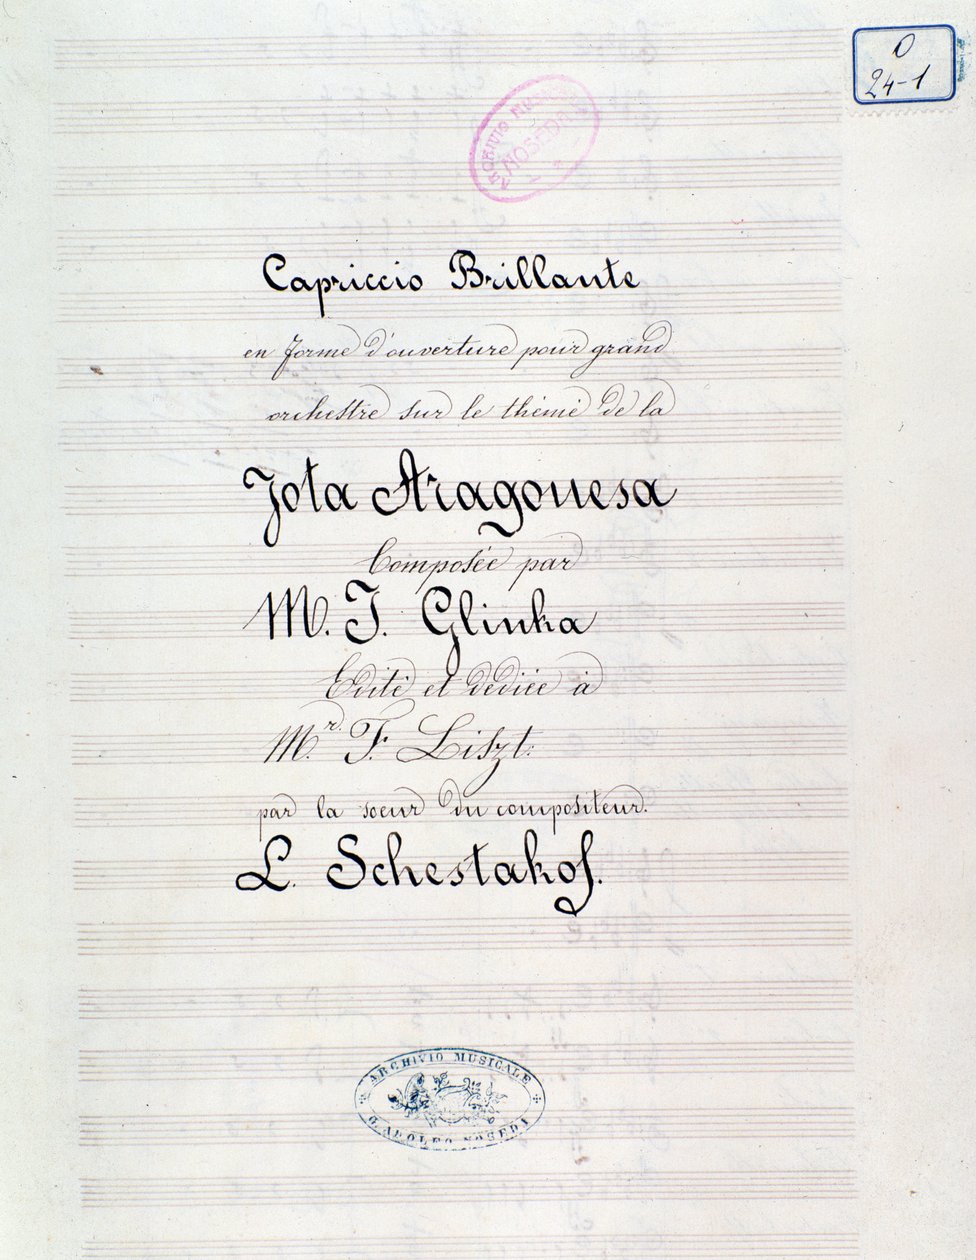 O
24-1
ARCHIVIO MUSICALE
NOSEDA
Capriccio Brillante
en forme d'ouverture pour grand
orchestre sur le thème de la
Jota Aragonesa
Composée par
M. J. Glinka
Edité et dediée à
M.r F. Liszt.
par la soeur du compositeur.
L. Schestakof.
ARCHIVIO MUSICALE
G. ADOLFO NOSEDA